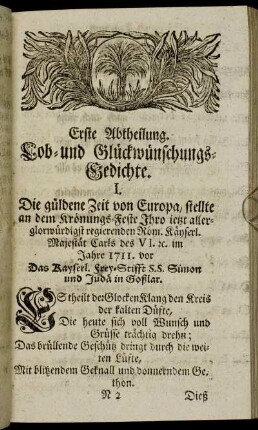 Erste Abtheilung.
Lob- und Glückwünschungs-
Gedichte.
I.
Die güldene Zeit von Europa, stellte
an dem Krönungs-Feste Ihro ietzt aller-
glorwürdigst regierenden Röm. Käyserl.
Majestät Carls des VI. ꝛc. im
Jahre 1711. vor
Das Kayserl. Frey-Stifft S.S. Simon
und Judä in Goßlar.
ES theilt der Glocken Klang den Kreis
der kalten Düfte,
Die heute sich voll Wunsch und
Grüsse trächtig drehn;
Das brüllende Geschütz dringt durch die wei-
ten Lüfte,
Mit blitzendem Geknall und donnerndem Ge-
thön.
N 2 Dieß